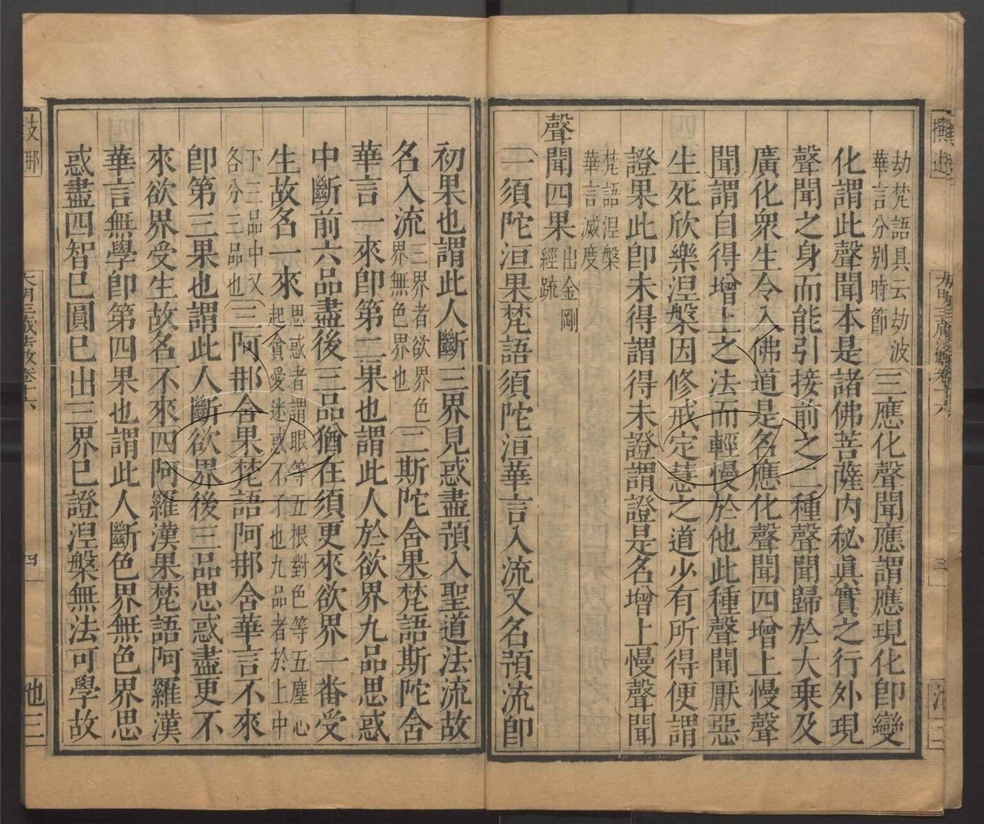 劫梵語具云劫波華言分別時節三應化聲聞應謂應現化卽變
化謂此聲聞本是諸佛菩薩內秘眞實之行外現
聲聞之身而能引接前之二種聲聞歸於大乗及
廣化衆生令入佛道是名應化聲聞四增上慢聲
聞謂自得增上之法而輕慢於他此種聲聞厭惡
生死欣樂涅槃因修戒定慧之道少有所得便謂
證果此卽未得謂得未證謂證是名增上慢聲聞
梵語涅槃華言滅度
聲聞四果出金剛經䟽
一須陀洹果梵語須陀洹華言入流又名預流卽
初果也謂此人斷三界見惑盡預入聖道法流故
名入流三界者欲界色界無色界也二斯陀含果梵語斯陀含
華言一來卽第二果也謂此人於欲界九品思惑
中斷前六品盡後三品猶在須更來欲界一番受
生故名一來思惑者謂眼等五根對色等五塵心起貪愛迷惑不了也九品者於上中
下三品中又各分三品也三阿那含果梵語阿那含華言不來
卽第三果也謂此人斷欲界後三品思惑盡更不
來欲界受生故名不來四阿羅漢果梵語阿羅漢
華言無學卽第四果也謂此人斷色界無色界思
惑盡四智已圓已出三界已證涅槃無法可學故
四
池三